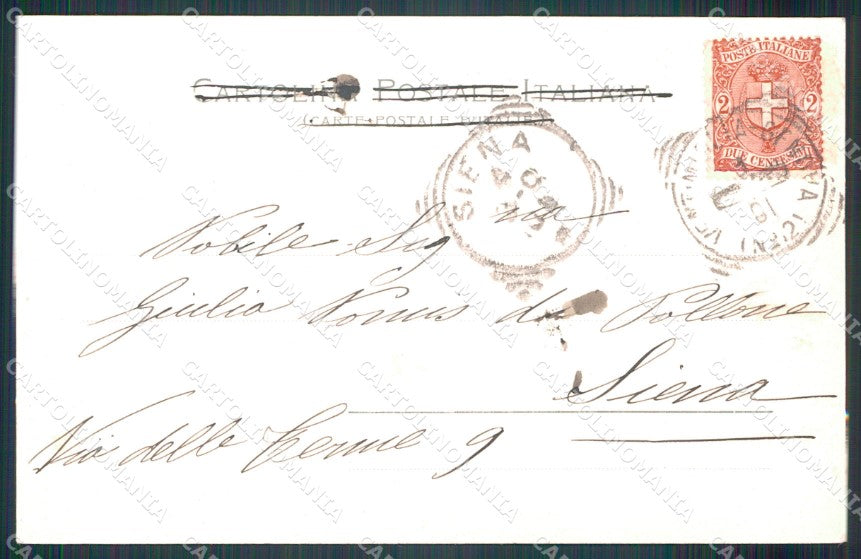 CARTOLINA POSTALE ITALIANA
(CARTE POSTALE D'ITALIE)
POSTE ITALIANE
2 2
DUE CENTESIMI
SIENA
Nobile Signa
Giulia Nomis di Pollone
Siena
Via delle Terme 9
CARTOLINOMANIA